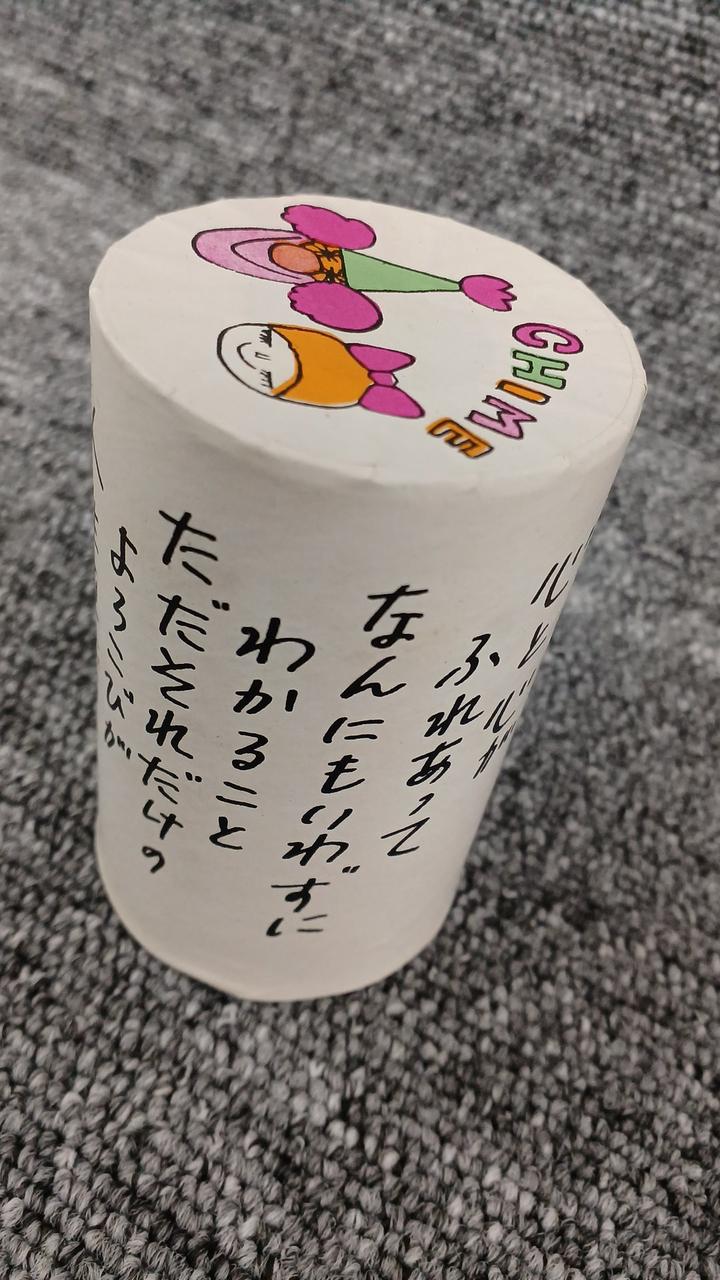 CHIME
心と心が
ふれあって
なんにもいわずに
わかること
ただそれだけの
よろこびが
人